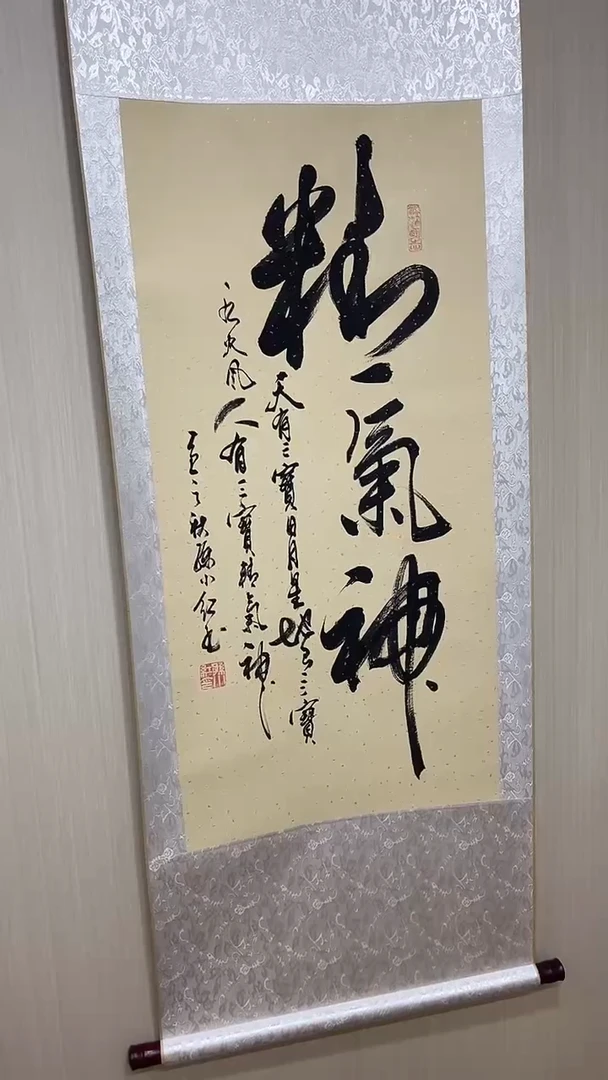 精氣神
天有三寶日月星地有三寶
水火風人有三寶精氣神
秋 小紅书